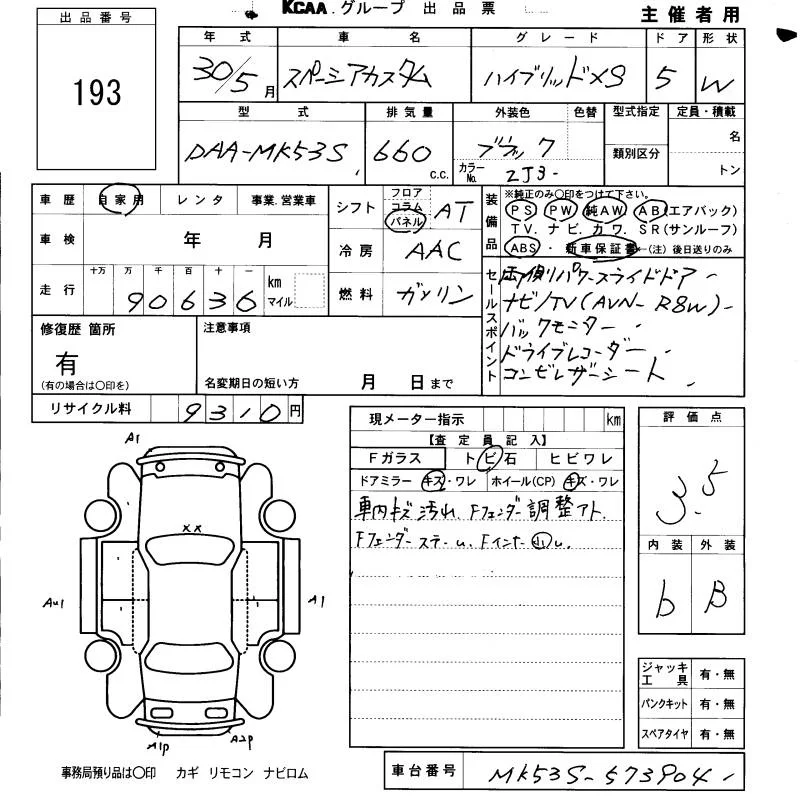 KCAA.グループ 出品票 主催者用
出品番号
193
年式 車名 グレード ドア 形状
30/5月 スペーシアカスタム ハイブリッドXS 5 W
型式 排気量 外装色 色替 型式指定 定員・積載
DAA-MK53S 660 c.c. ブラック カラーNo. ZJ3 類別区分 名 トン
車歴 自家用 レンタ 事業.営業車
車検 年 月
走行 十万 万 千 百 十 一 km マイル
90636
シフト フロア コラム パネル AT
冷房 AAC
燃料 ガソリン
装備品 ※純正のみ〇印をつけて下さい。
PS PW 純AW. AB(エアバック)
TV. ナビ. カワ. SR(サンルーフ)
ABS・新車保証書←(注)後日送りのみ
セールスポイント
両側パワースライドドア
ナビ/TV(AVN-R8W)
バックモニター
ドライブレコーダー
コンビレザーシート
修復歴 箇所
有
(有の場合は〇印を)
注意事項
名変期日の短い方 月 日まで
リサイクル料 9310円
現メーター指示 km
【査定員記入】
Fガラス トビ石 ヒビワレ
ドアミラー キズ・ワレ ホイール(CP) キズ・ワレ
車内キズ汚れ、Fフェンダー調整アト、
Fフェンダーステー
評価点
3.5
内装 外装
b B
ジャッキ工具 有・無
パンクキット 有・無
スペアタイヤ 有・無
A1
XX
AU1 A1
A1p A2p
事務局預り品は〇印 カギ リモコン ナビロム
車台番号 MK53S-573904